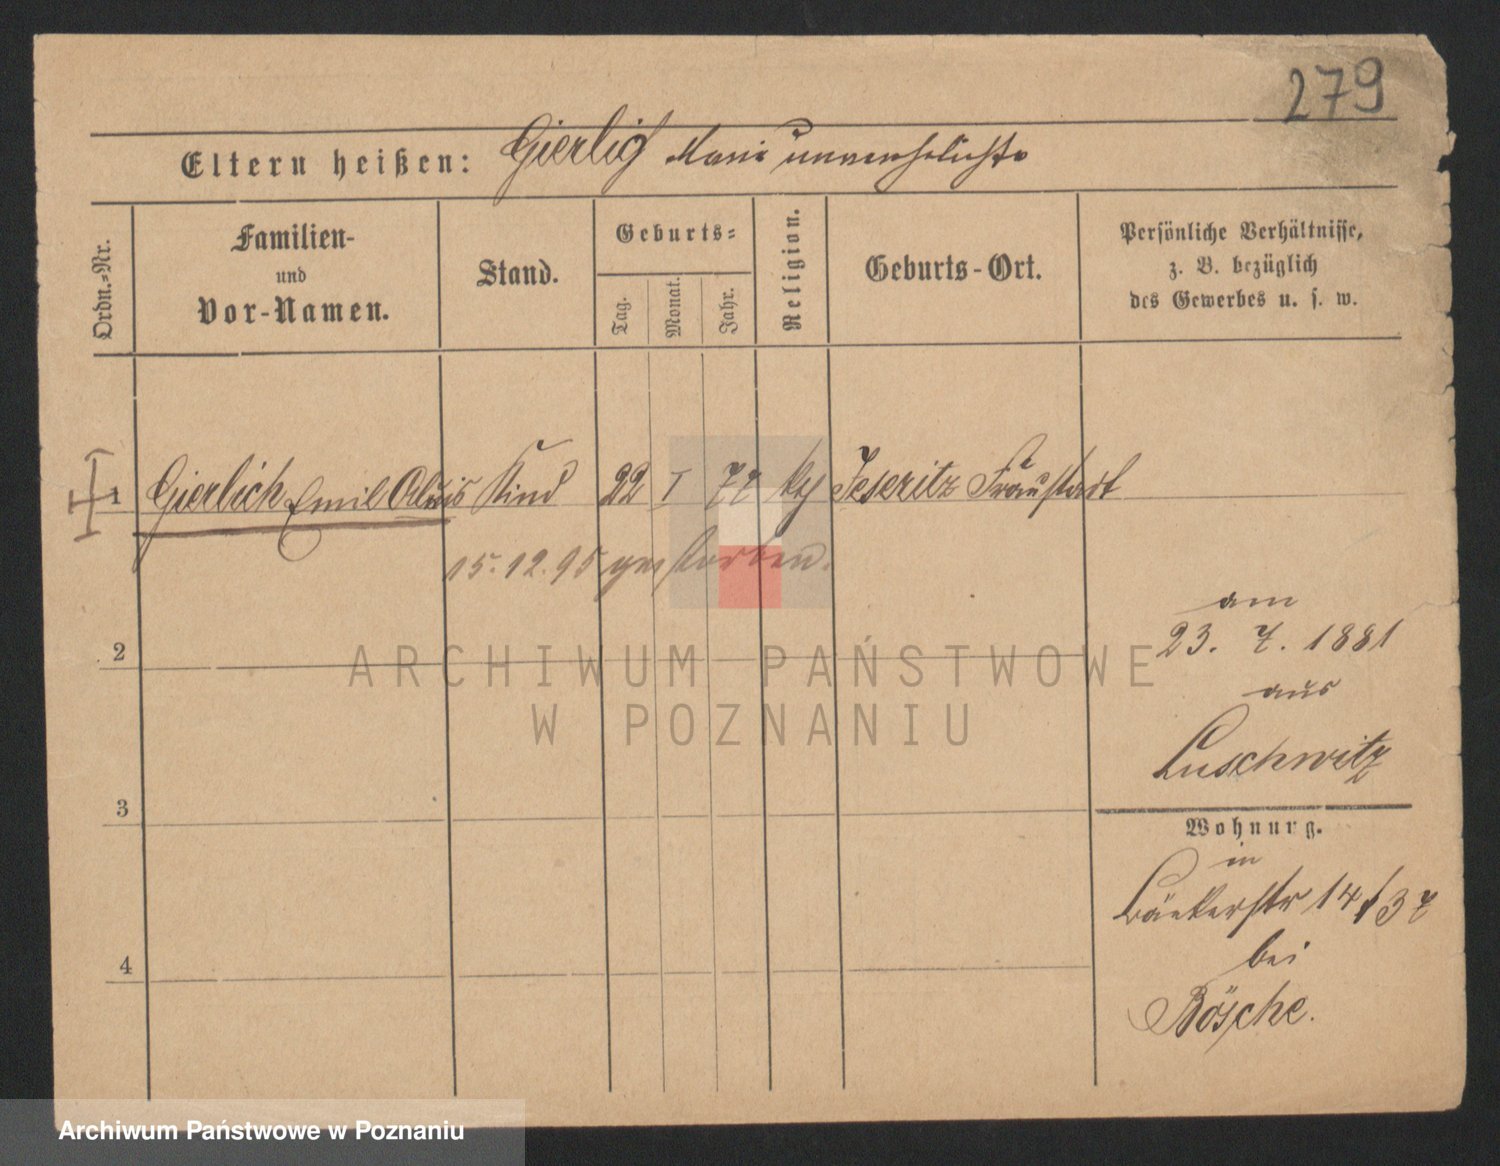 279
Eltern heißen: Gierlig Marie unverehelichte
Ordn.-Nr.
Familien-
und
Vor-Namen.
Stand.
Geburts-
Tag.
Monat.
Jahr.
Religion.
Geburts-Ort.
Persönliche Verhältnisse,
z. B. bezüglich
des Gewerbes u. s. w.
1 Gierlich Emil Alois Kind 22 I 72 ktz Jeseritz Fraustadt
15. 12. 95 gestorben.
am
23. 7. 1881
aus
Luschwitz
2
3
4
Wohnung.
in
Bäckerstr 14/37
bei
Bösche.
ARCHIWUM PAŃSTWOWE
W POZNANIU
Archiwum Państwowe w Poznaniu